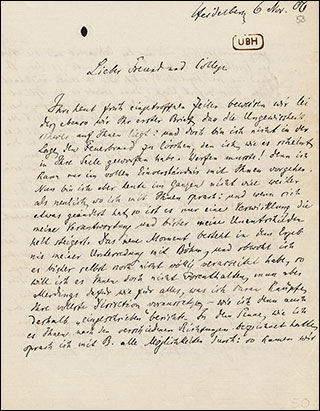 Heidelberg 6 Nov. 06
53
UBH
Lieber Freund und College
Ihre heut früh eingetroffenen Zeilen beweisen wie
daß ebenso wie Ihr erster Brief, daß die Ungewissheit
schwer auf Ihnen liegt: und doch bin ich nicht in der
Lage den Feuerbrand zu löschen, den ich, wie es scheint,
in Ihre Seele geworfen habe. Werfen musste! denn ich
kann nur im vollen Einverständnis mit Ihnen vorgehen.
Nun bin ich aber heute im Ganzen nicht viel weiter
als neulich, wo ich mit Ihnen sprach: und wenn sich
etwas geändert hat, so ist es nur eine Verwicklung die
meine Verantwortung und bisher meine Unentschieden-
heit steigert. Das neue Moment besteht in dem Ergeb-
nis meiner Unterredung mit Böhm, und obwohl ich
es bisher selbst noch nicht völlig verarbeitet habe, so
will ich es Ihnen doch nicht vorenthalten, muss aber
allerdings dafür wie für alles, was ich daran knüpfe,
Ihre vollste Discretion voraussetzen — wie ich denn auch
deshalb „eingeschrieben“ berichte. In dem Sinne, wie ich
es Ihnen nach den verschiedenen Richtungen bezeichnet hatte,
sprach ich mit B. alle Möglichkeiten durch: so kamen wir
50